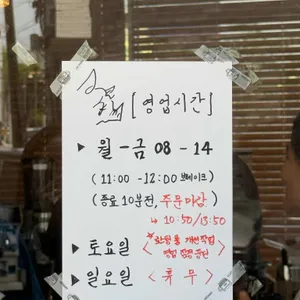 [영업시간]
▶ 월 - 금 08 - 14
(11:00 - 12:00 브레이크)
(종료 10분전, 주문마감)
↳ 10:50/13:50
▶ 토요일
영업 잠정 중단
▶ 일요일 < 휴 무 >